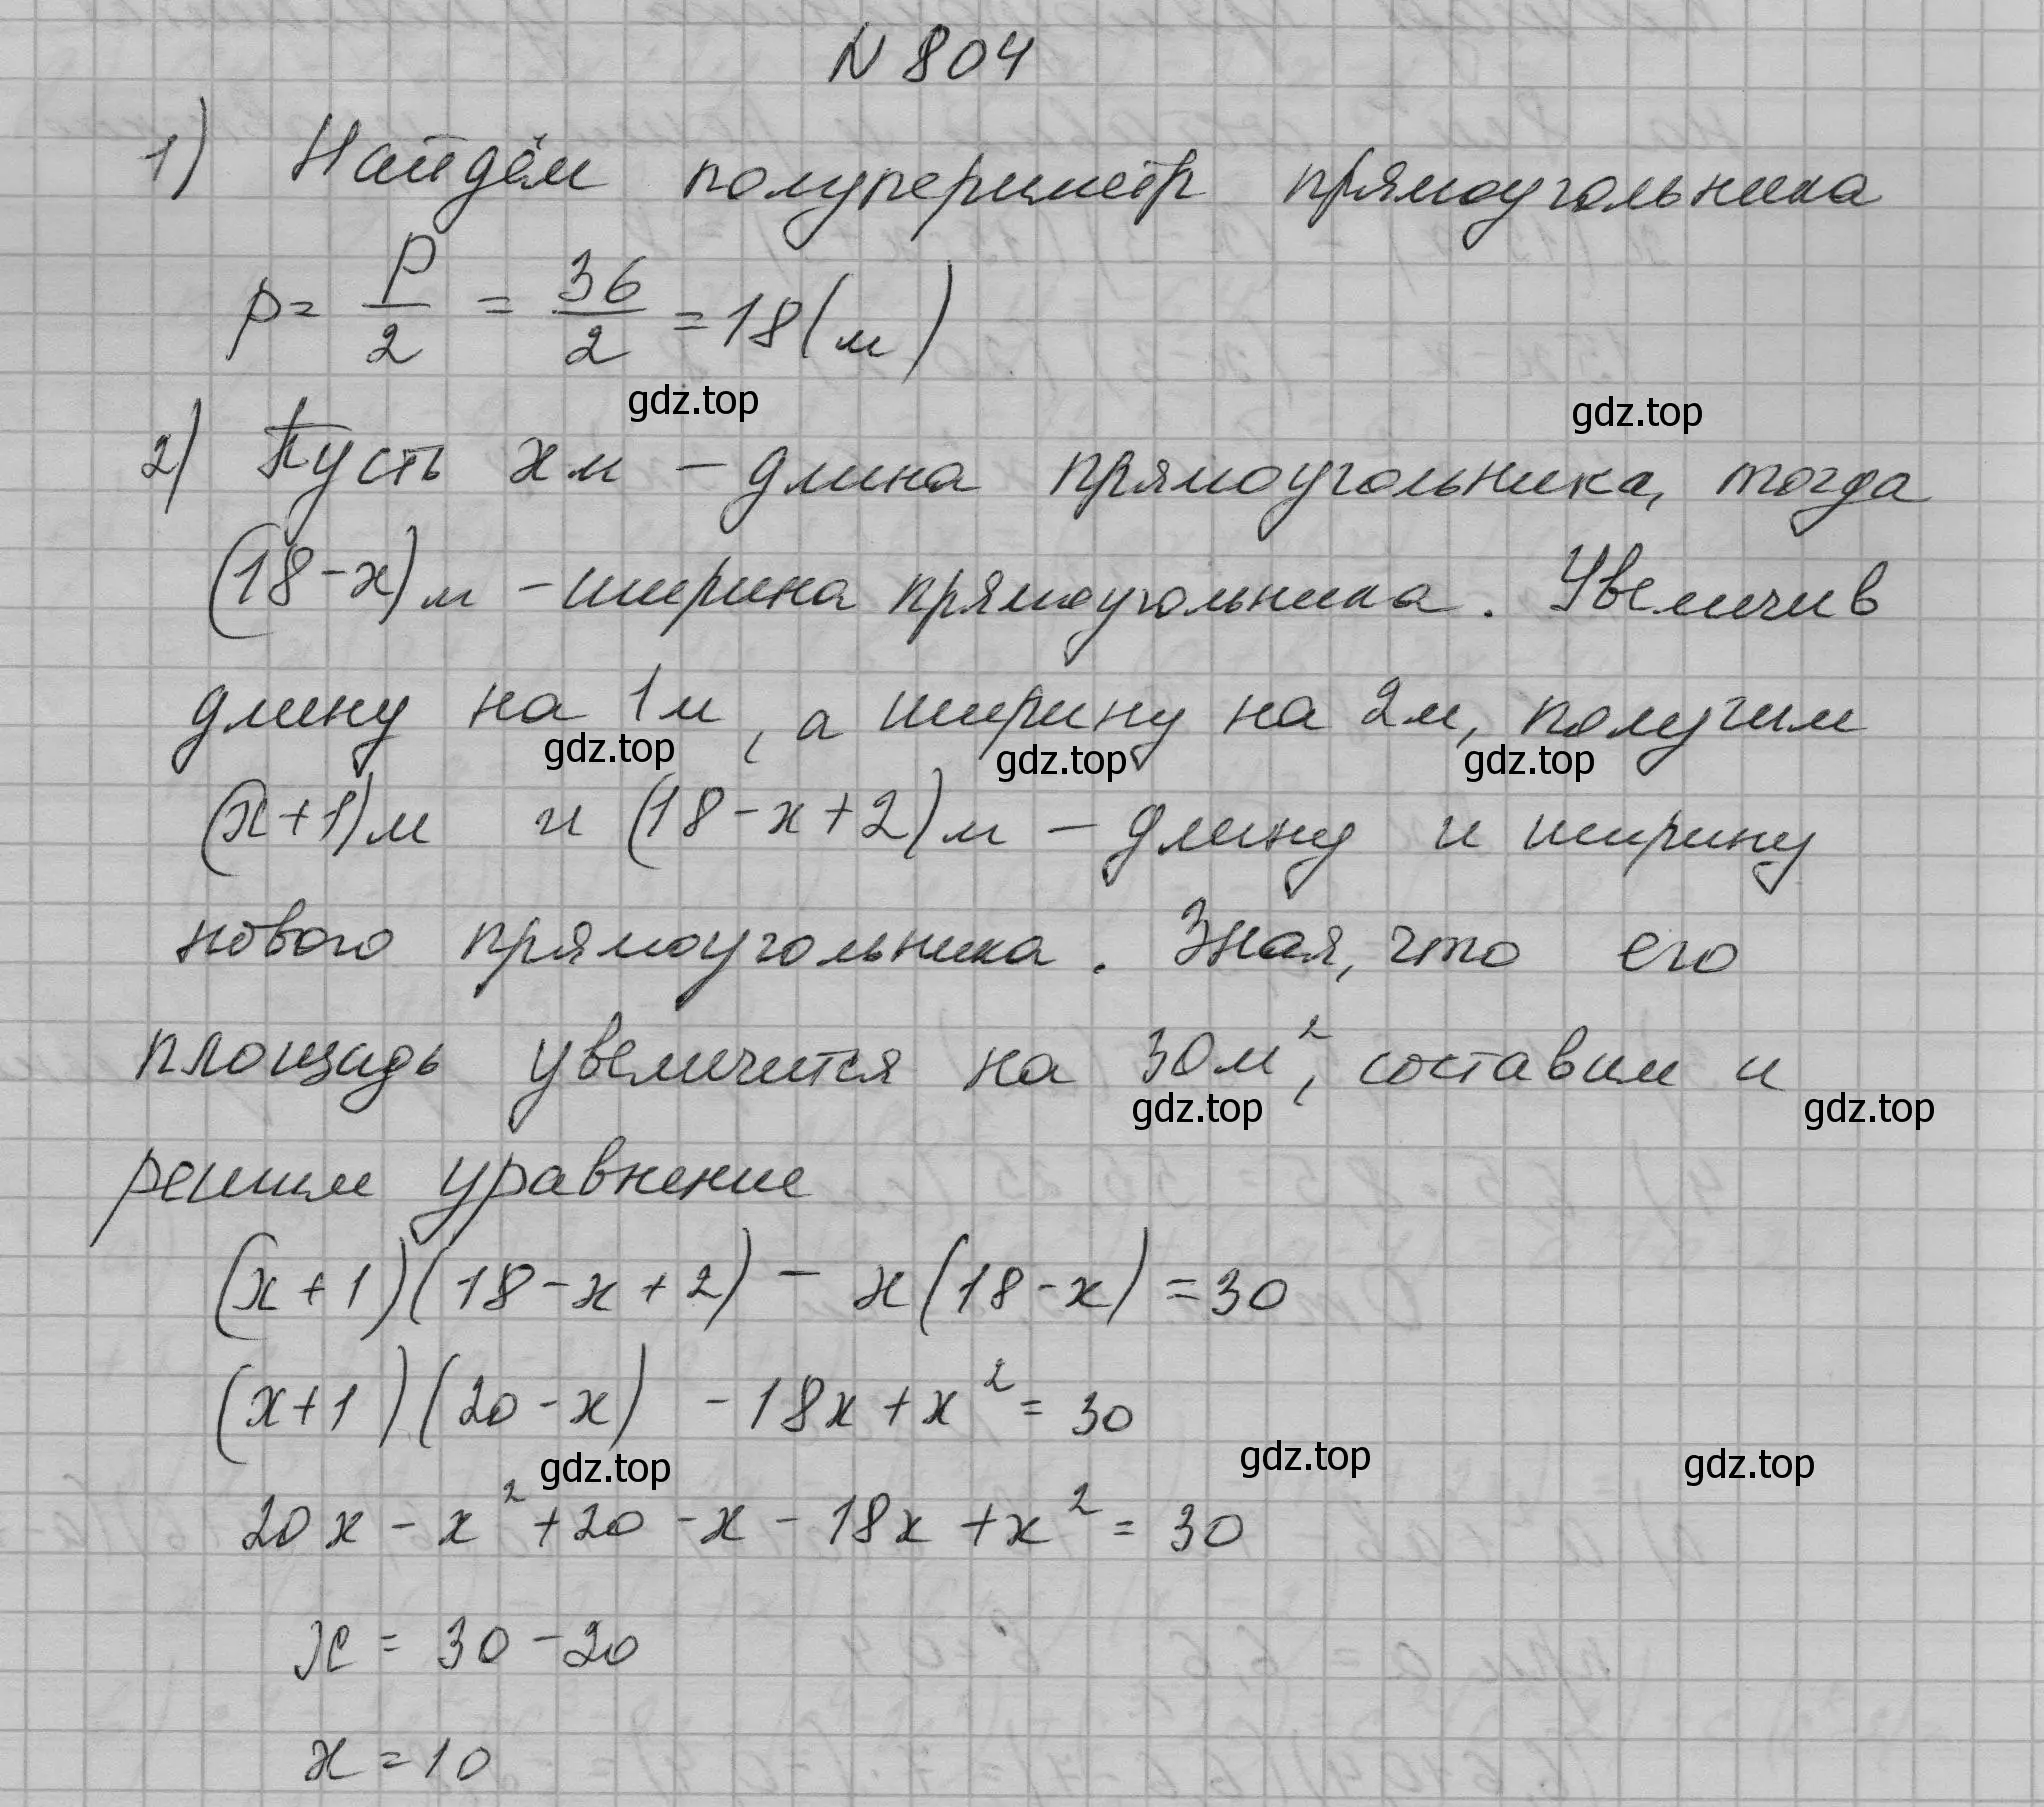 N 804
1) Найдём полупериметр прямоугольника
p = P/2 = 36/2 = 18 (м)
gdz.top
gdz.top
2) Пусть x м – длина прямоугольника, тогда
(18 - x) м – ширина прямоугольника. Увеличив
длину на 1 м, а ширину на 2 м, получим
gdz.top gdz.top gdz.top
(x + 1) м и (18 - x + 2) м – длину и ширину
нового прямоугольника. Зная, что его
площадь увеличится на 30 м², составим и
gdz.top gdz.top
решим уравнение
(x + 1)(18 - x + 2) - x(18 - x) = 30
(x + 1)(20 - x) - 18x + x² = 30
gdz.top gdz.top gdz.top
20x - x² + 20 - x - 18x + x² = 30
x = 30 - 20
x = 10